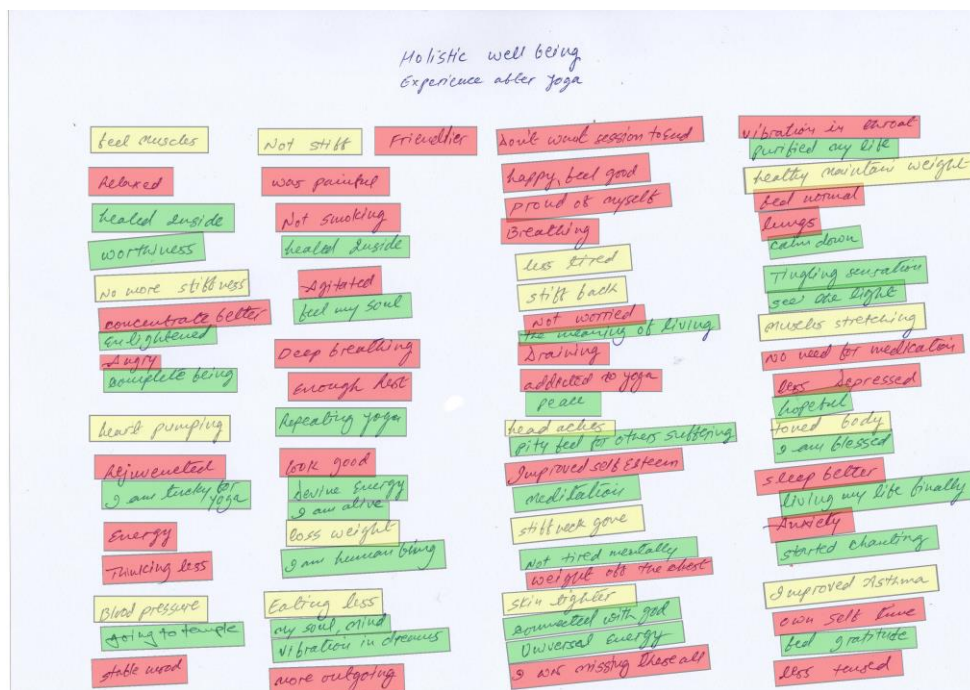 Holistic well being
Experience after yoga
feel muscles
Relaxed
healed inside
worthiness
No more stiffness
concentrate better
Enlightened
Angry
complete being
heart pumping
Rejuveneted
I am lucky for yoga
Energy
Thinking less
Blood pressure
going to temple
stable mood
Not stiff
Friendlier
was painful
Not smoking
healed inside
Agitated
feel my soul
Deep breathing
Enough Rest
Repeating yoga
look good
devine Energy
I am alive
loss weight
I am human bing
Eating less
my soul, mind
vibration in dreams
more outgoing
Don't want session to end
happy, feel good
proud of myself
Breathing
less tired
stiff back
Not worried
the meaning of living
Draining
addicted to yoga
peace
head aches
pity feel for others suffering
Improved self Esteem
meditation
stiff neck gone
Not tired mentally
weight off the chest
skin tighter
connected with god
Universal Energy
I was missing these all
vibration in throat
purified my life
healthy maintain weight
feel normal
lungs
calm down
Tingling sensation
see the light
Muscles stretching
No need for medication
less depressed
hopeful
toned body
I am blessed
sleep better
living my life finally
Anxiety
started chanting
Improved Asthma
own self time
feel gratitude
less tensed